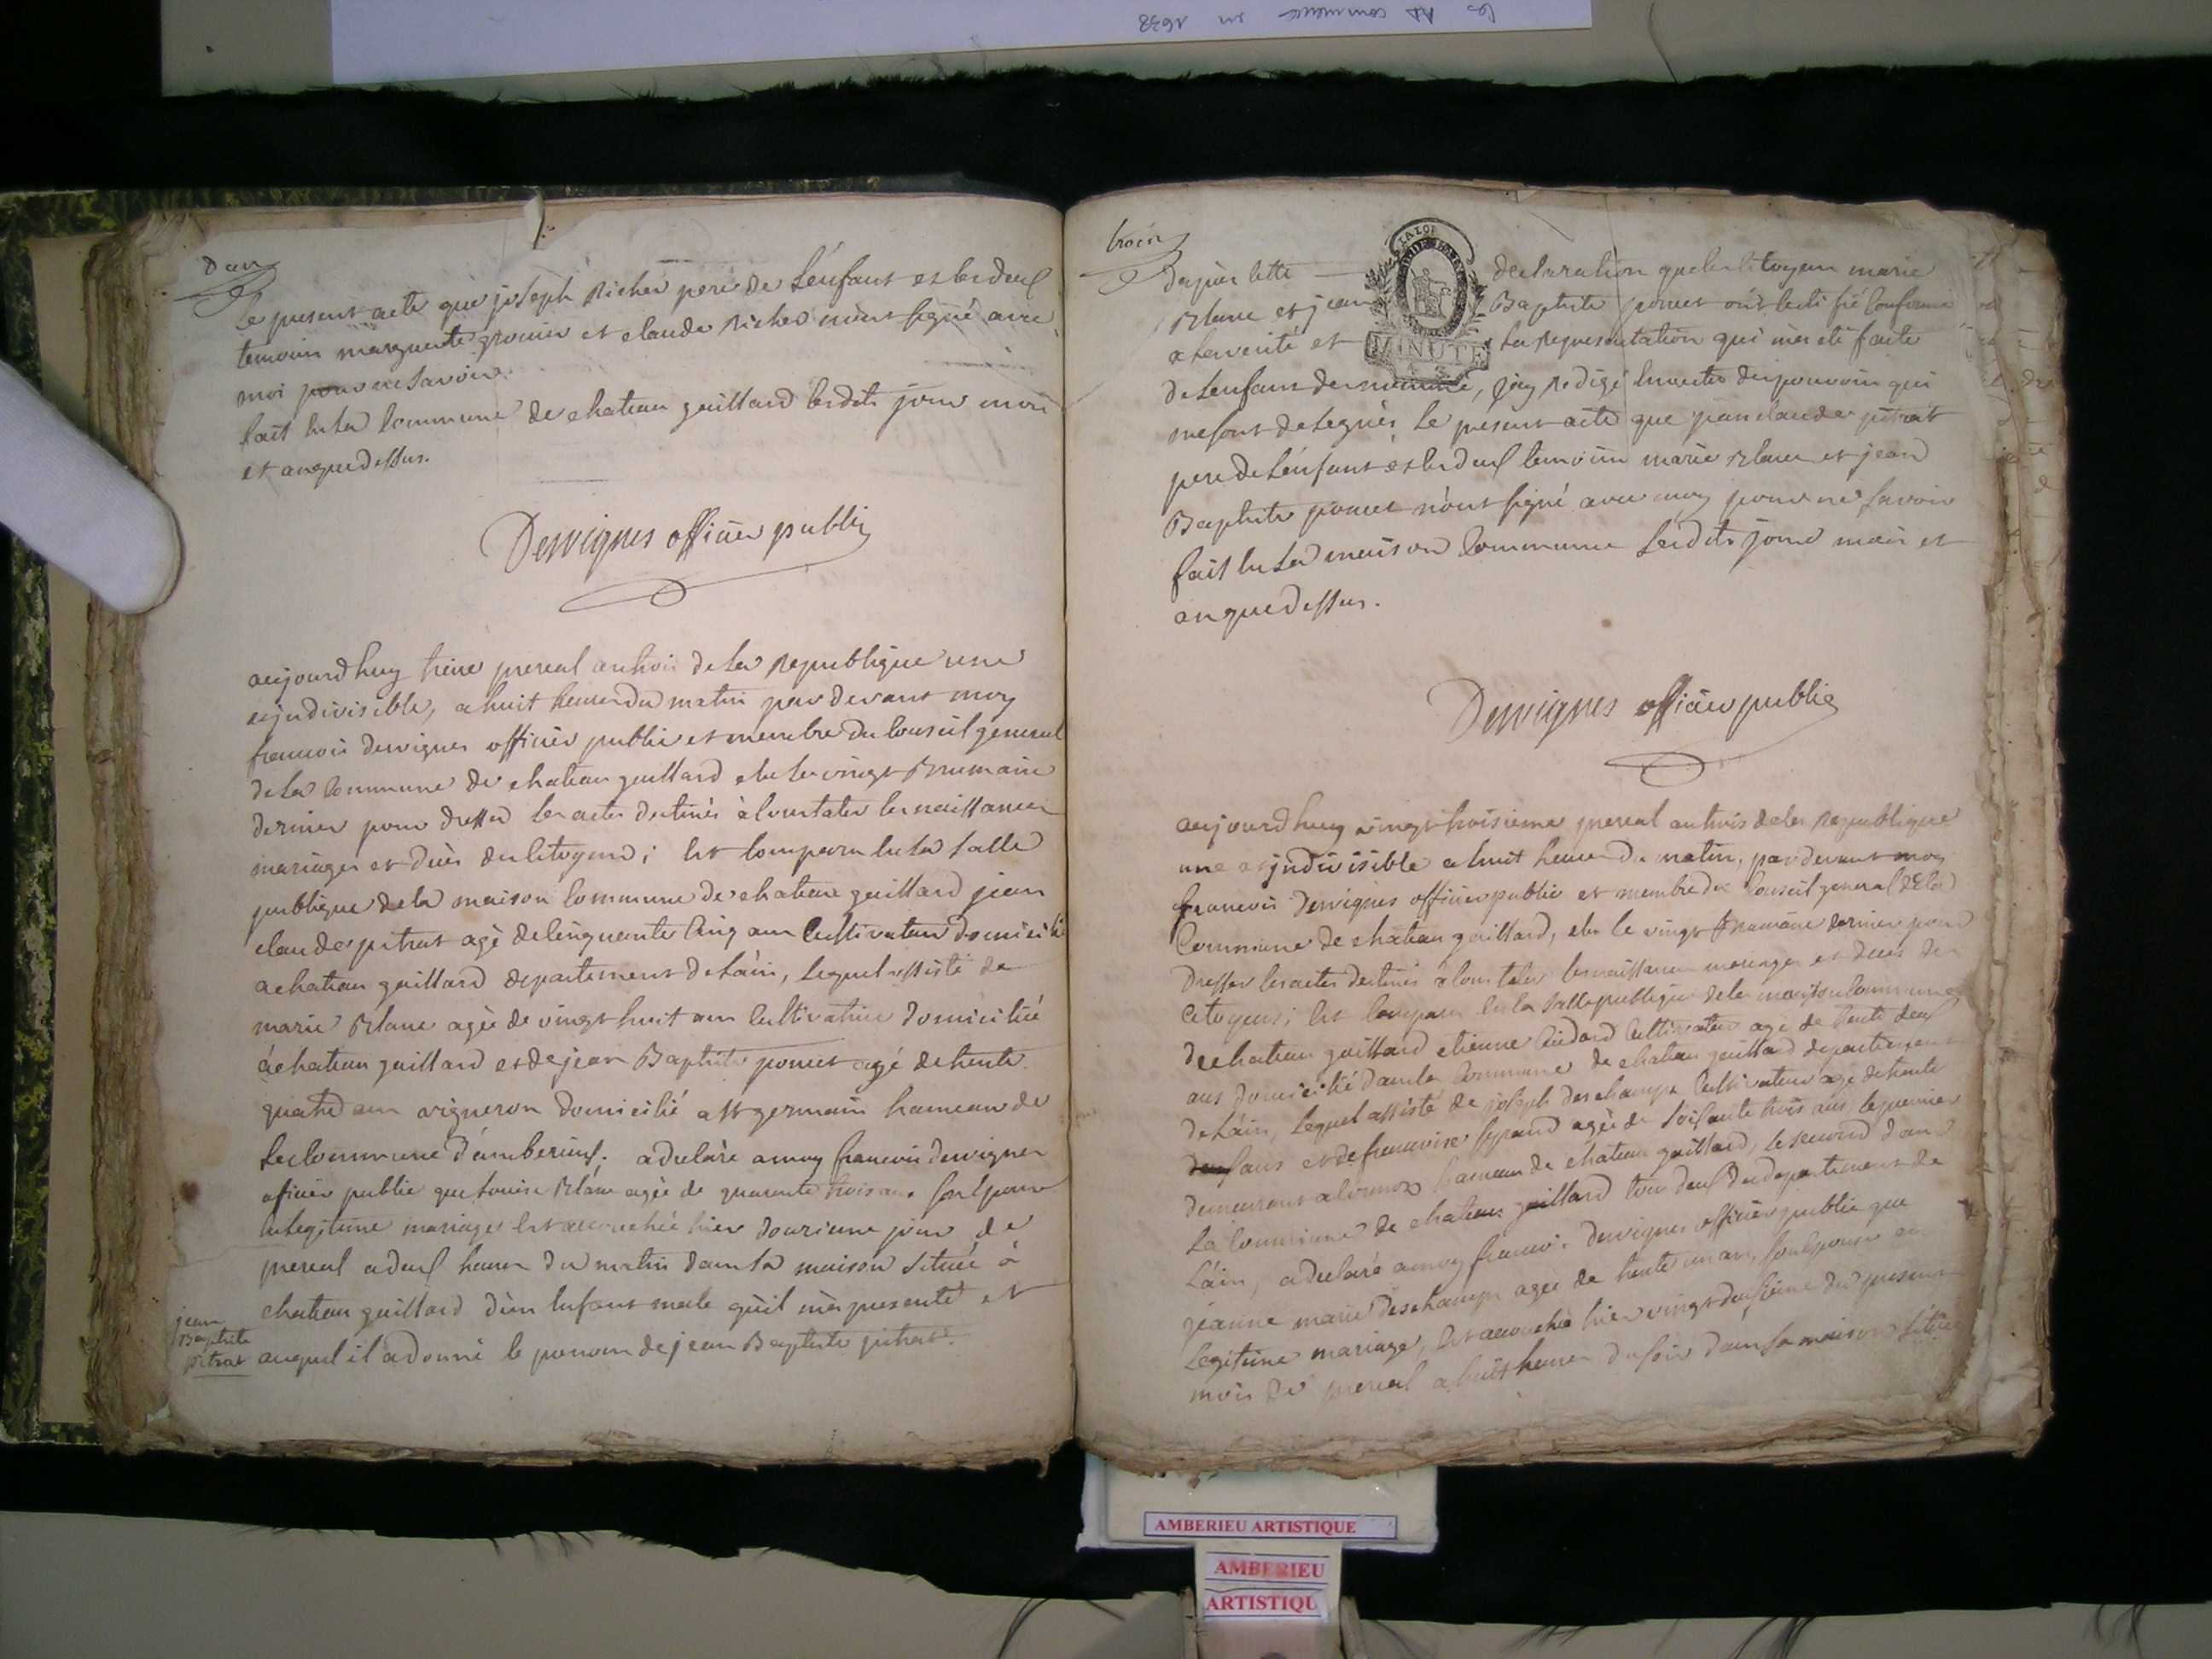 les AD commence en 1638
deux
Le present acte que joseph Richer pere de L'enfant et les deux
temoins marguerite grenier et claude Richer n'ont signé avec
moi pour ne savoir
fait en La commune de chateau gaillard les dits jour mois
et an que dessus.
Dervignes officier public
aujourd huy treize prereal an trois de La Republique une
et jndivisible, a huit heures du matin par devant moy
francois dervignes officier public et membre du Conseil general
de La Commune de chateau gaillard elu le vingt Brumaire
dernier pour dresser les actes destinés à Constater les naissances
mariages et decès des citoyens; est Comparu en La salle
publique de la maison Commune de chateau gaillard jean
claude pitrat agé de Cinquante Cinq ans Cultivateur domicilié
a chateau gaillard departement de L'ain, Lequel assisté de
marie Blanc agée de vingt huit ans Cultivatrice domiciliée
à chateau gaillard et de jean Baptiste poncet agé de trente
quatre ans vigneron domicilié a st germain hameau de
La Commune d'amberieux; a declaré a moy francois dervignes
oficier public que Louise Blanc agée de quarante trois ans son epouse
en legitime mariage est accouchée hier douzieme jour de
prereal a deux heures du matin dans sa maison située à
chateau gaillard d'un enfant male qu'il m'a presenté et
auquel il a donné le prenom de jean Baptiste pitrat.
jean
Baptiste
pitrat
trois
Dapres cette declaration que les citoyens marie
Blanc et jean Baptiste poncet ont certifié Conforme
a La verité et La Representation qui m'a eté faite
MINUTE
de L'enfant denommé, j'ay Redigé en vertu des pouvoirs qui
me sont delegués Le present acte que jean claude pitrat
pere de L'enfant et les deux temoins marie Blanc et jean
Baptiste poncet n'ont signé avec moy pour ne savoir
fait en La maison Commune Les dits jour mois et
an que dessus.
Dervignes officier public
aujourd huy vingt troisieme prereal an trois de la Republique
une et jndivisible a huit heures du matin, par devant moy
francois dervignes officier public et membre du Conseil general de la
Commune de chateau gaillard, elu le vingt Brumaire dernier pour
dresser les actes destinés a Constater les naissances mariages et deces des
Citoyens; est Comparu en la salle publique de la maison Commune
de chateau gaillard etienne Cultivateur agé de trente deux
ans domicilié dans la Commune de chateau gaillard departement
de L'ain, Lequel assisté de joseph deschamps Cultivateur agé de trente
ans et de francoise agée de soisante trois ans, le premier
demeurant a hameau de chateau gaillard, le second dans
La Commune de chateau gaillard tous deux du departement de
L'ain, a declaré a moy francois dervignes officier public que
jeanne marie Deschamps agée de trente un ans, son epouse en
Legitime mariage, est accouchée hier vingt deuxieme du present
mois de prereal a huit heures du soir dans sa maison située
AMBERIEU ARTISTIQUE
AMBERIEU
ARTISTIQU